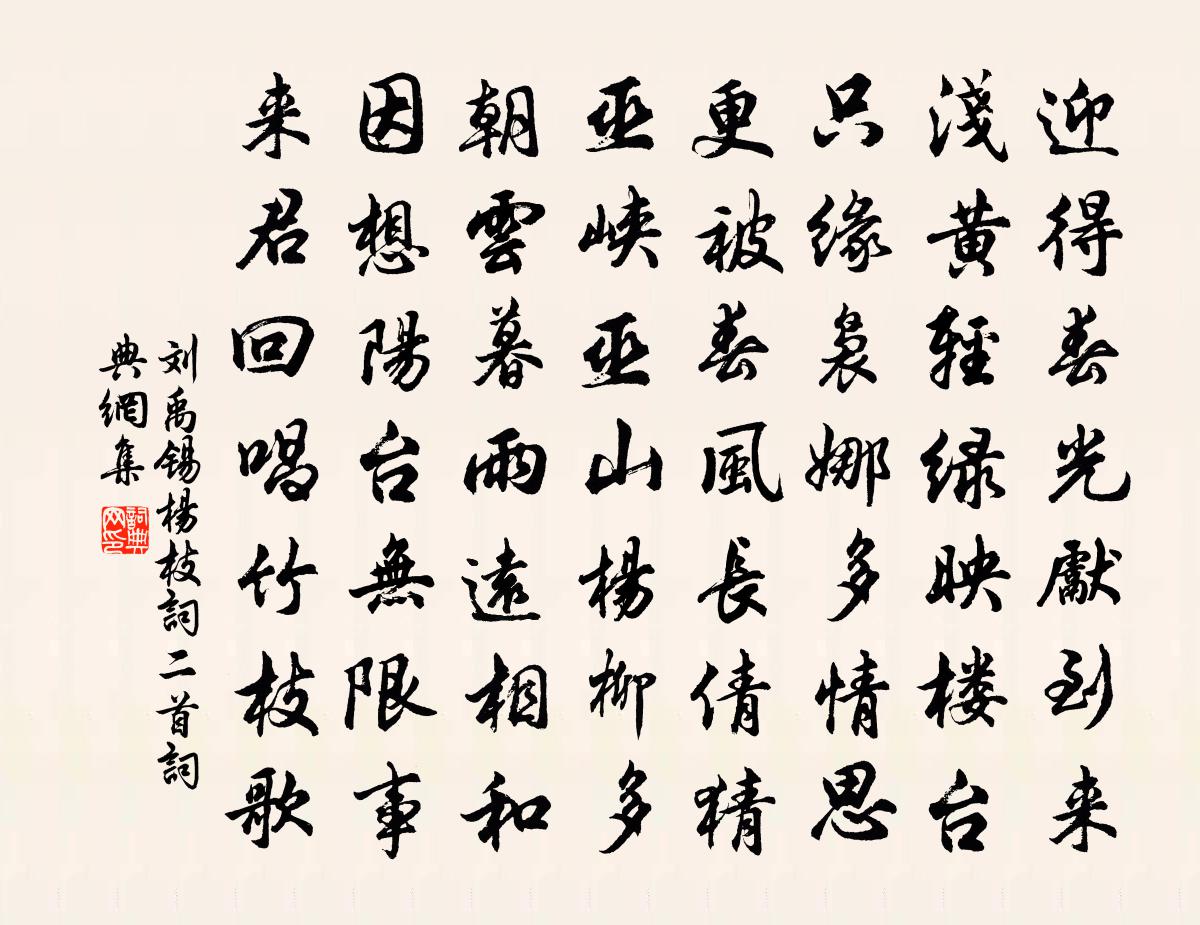 迎得春光獻到来
淺黄輕緑映楼台
只缘裊娜多情思
更被春風長倩猜
巫峡巫山楊柳多
朝雲暮雨遠相和
因想陽台無限事
来君回唱竹枝歌
刘禹锡楊枝詞二首詞
典網集
詞典
网印